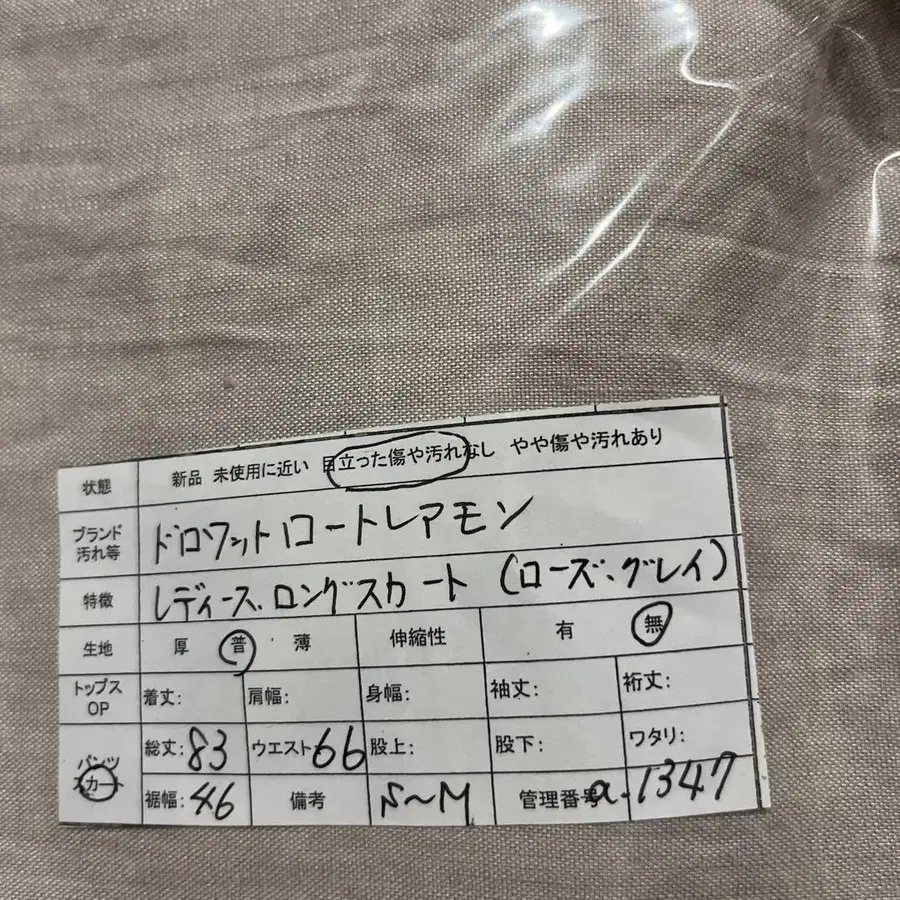 状態 新品 未使用に近い 目立った傷や汚れなし やや傷や汚れあり
ブランド 汚れ等 ドロワットロートレアモン
特徴 レディース、ロングスカート (ローズ、グレイ)
生地 厚 普 薄 伸縮性 有 無
トップス OP 着丈: 肩幅: 身幅: 袖丈: 裄丈:
パンツ 総丈:83 ウエスト66 股上: 股下: ワタリ:
カート 裾幅:46 備考 S〜M 管理番号a.1347